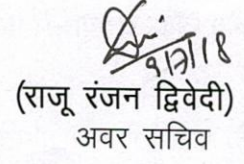 9/7/18
(राजू रंजन द्विवेदी)
अवर सचिव